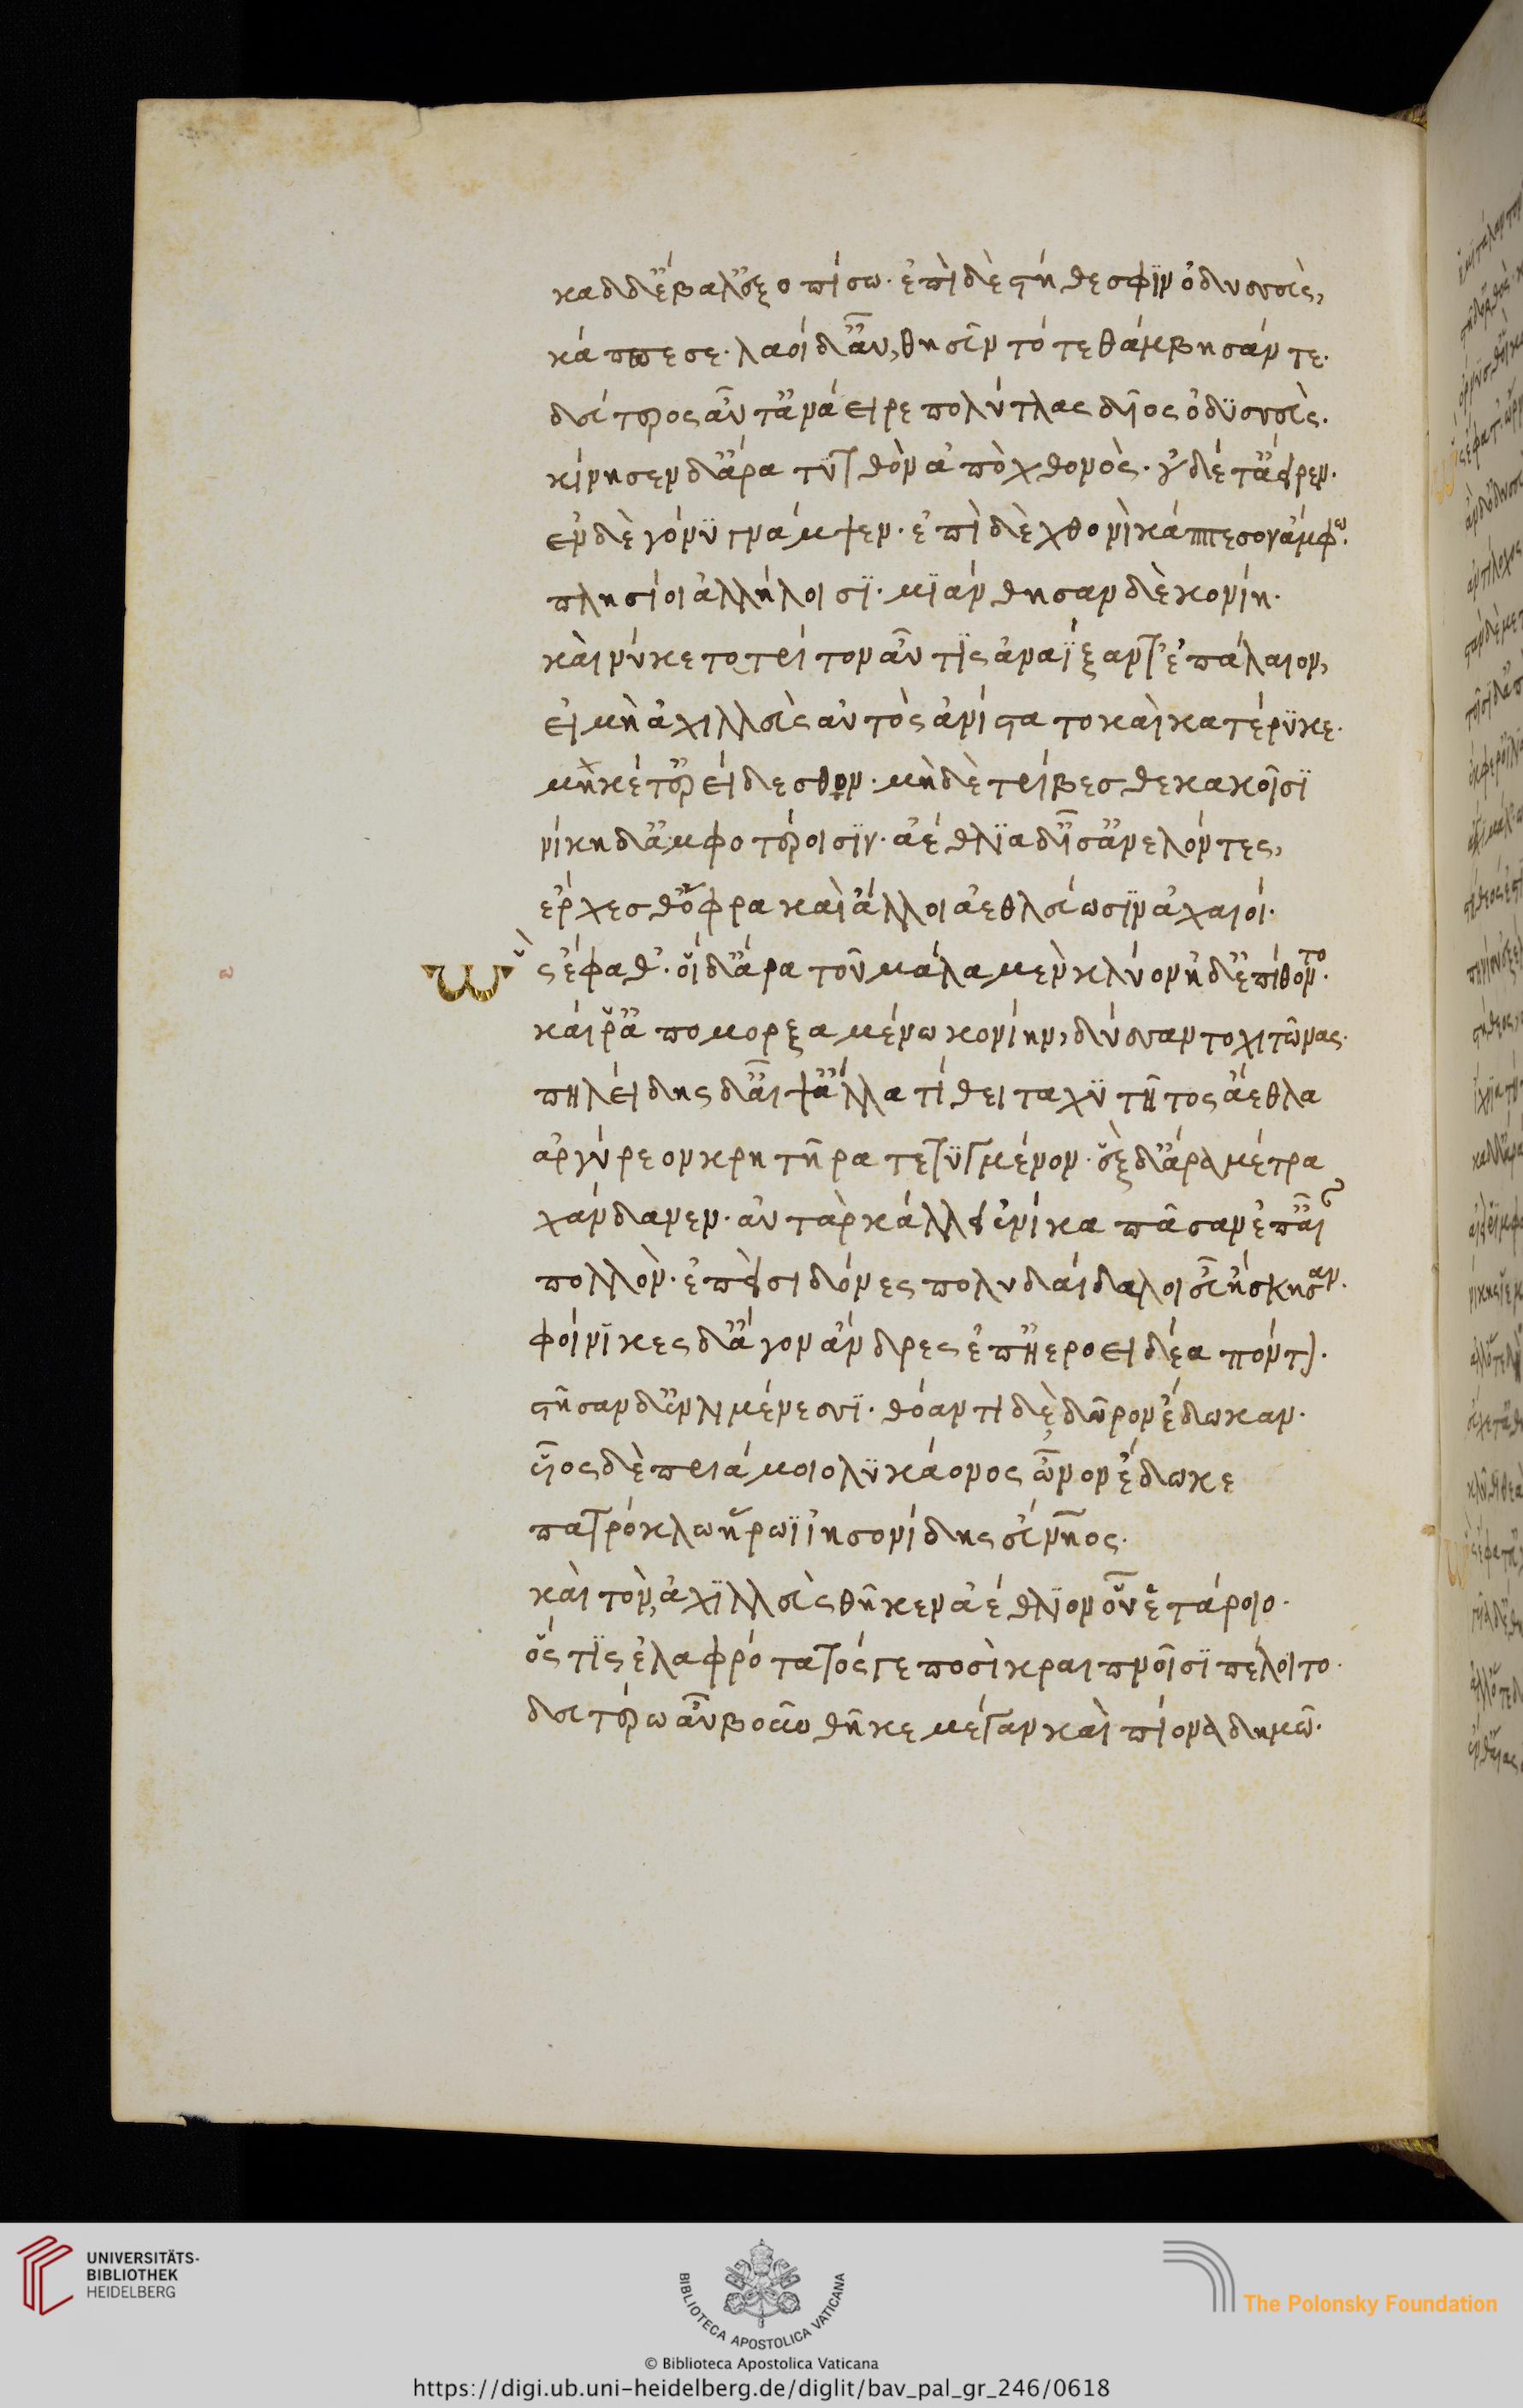 καδδ' ἔβαλ' ἐξοπίσω· ἐπὶ δὲ στήθεσφιν ὀδυσσεὺς,
κάππεσε· λαοὶ δ' αὖ, θηεῦντό τε θάμβησάν τε·
δεύτερος αὖτ' ἀνάειρε πολύτλας δῖος ὀδυσσεὺς·
κίνησεν δ' ἄρα τυτθὸν ἀπὸ χθονὸς· οὐδέ τ' ἄειρεν·
ἐν δὲ γόνυ γνάμψεν· ἐπὶ δὲ χθονὶ κάππεσον ἄμφω·
πλησίοι ἀλλήλοισι· μιάνθησαν δὲ κονίῃ·
καὶ νύ κε τὸ τρίτον αὖτις ἀναΐξαντ' ἐπάλαιον,
εἰ μὴ ἀχιλλεὺς αὐτὸς ἀνίστατο καὶ κατέρυκε·
μηκέτ' ἐρείδεσθον· μηδὲ τρίβεσθε κακοῖσι
νίκη δ' ἀμφοτέροισιν· ἀέθλια δ' ἶσ' ἀνελόντες,
ἔρχεσθ' ὄφρα καὶ ἄλλοι ἀεθλεύωσιν ἀχαιοί·
Ὣς ἔφαθ'· οἳ δ' ἄρα τοῦ μάλα μὲν κλύον ἠδ' ἐπίθοντο·
καί ῥ' ἀπομορξαμένω κονίην, δύσσαντο χιτῶνας·
πηλείδης δ' αἶψ' ἄλλα τίθει ταχυτῆτος ἄεθλα
ἀργύρεον κρητῆρα τετυγμένον· ἓξ δ' ἄρα μέτρα
χάνδανεν· αὐτὰρ κάλλει ἐνίκα πᾶσαν ἐπ' αἶαν
πολλὸν· ἐπεὶ σιδόνες πολυδαίδαλοι εὖ ἤσκησαν·
φοίνικες δ' ἄγον ἄνδρες ἐπ' ἠεροειδέα πόντον·
στῆσαν δ' ἐν λιμένεσσι· θόαντι δὲ δῶρον ἔδωκαν·
υἷος δὲ πριάμοιο λυκάονος ὦνον ἔδωκε
πατρόκλω ἥρωϊ ἰησονίδης εὔνηος·
καὶ τὸν, ἀχιλλεὺς θῆκεν ἀέθλιον οὗ ἑτάροιο·
ὅς τις ἐλαφρότατός γε ποσὶ κραιπνοῖσι πέλοιτο·
δευτέρω αὖ βοῦν θῆκε μέγαν καὶ πίονα δημῶ·
UNIVERSITÄTS-
BIBLIOTHEK
HEIDELBERG
BIBLIOTECA APOSTOLICA VATICANA
The Polonsky Foundation
© Biblioteca Apostolica Vaticana
https://digi.ub.uni-heidelberg.de/diglit/bav_pal_gr_246/0618